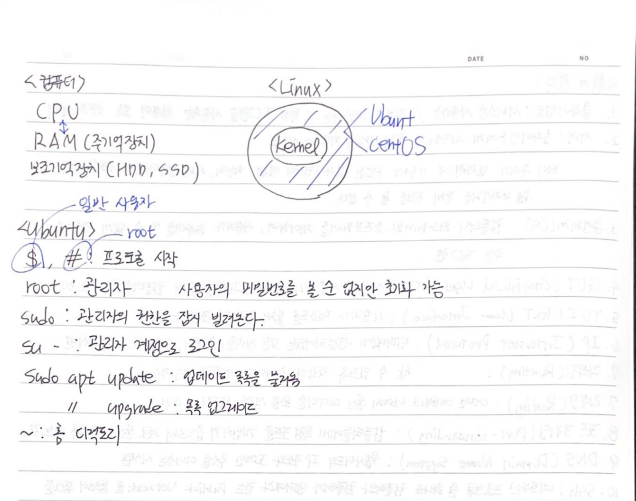 DATE
NO
<컴퓨터>
CPU
RAM (주기억장치)
보조기억장치 (HDD, SSD)
<Linux>
Kernel
Ubunt
CentOS
일반 사용자
<Ubuntu>
root
$, # : 프로토콜 시작
root : 관리자 사용자의 비밀번호를 볼 순 없지만 초기화 가능
sudo : 관리자의 권한을 잠시 빌려온다.
su - : 관리자 계정으로 로그인
sudo apt update : 업데이트 목록을 불러옴
〃 upgrade : 목록 업그레이드
~ : 홈 디렉토리